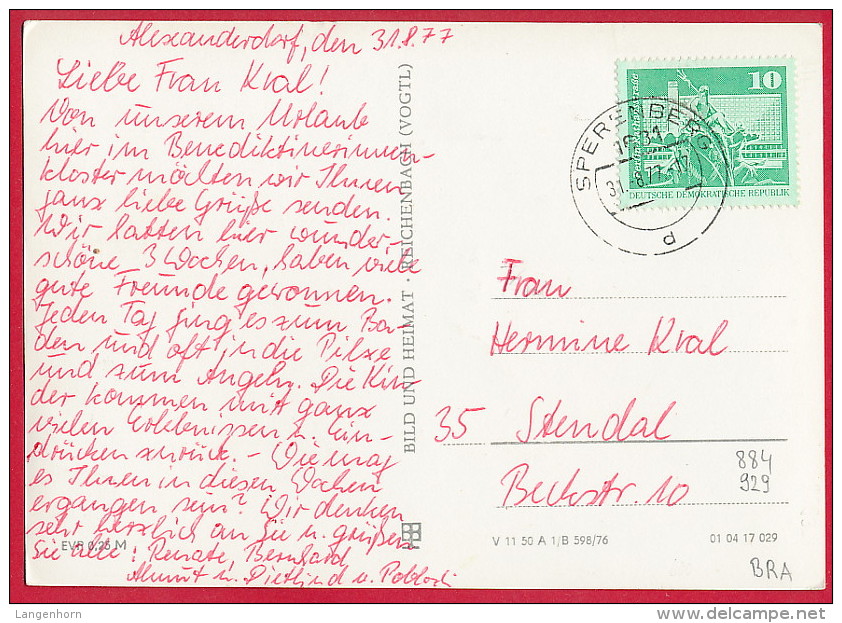 Alexanderdorf, den 31.8.77
Liebe Frau Kral!
Von unserem Urlaub
hier im Benediktinerinnen-
kloster möchten wir Ihnen
ganz liebe Grüße senden.
Wir hatten hier wunder-
schöne 3 Wochen, haben viele
gute Freunde gewonnen.
Jeden Tag ging es zum Ba-
den und oft in die Pilze
und zum Angeln. Die Kin-
der kommen mit ganz
vielen Erlebnissen u. Ein-
drücken zurück. – Wie mag
es Ihnen in diesen Wochen
ergangen sein? Wir denken
sehr herzlich an Sie u. grüßen
Sie alle: Renate, Bernhard
Almut u. Dietlind u.
EVP 0,25 M
BILD UND HEIMAT · REICHENBACH (VOGTL)
10
DEUTSCHE DEMOKRATISCHE REPUBLIK
SPERENBERG
1631
31.-8.77-17
d
Frau
Hermine Kral
35 Stendal
Beckstr. 10
884
929
V 11 50 A 1/B 598/76
01 04 17 029
BRA
Langenhorn
delcampe.net